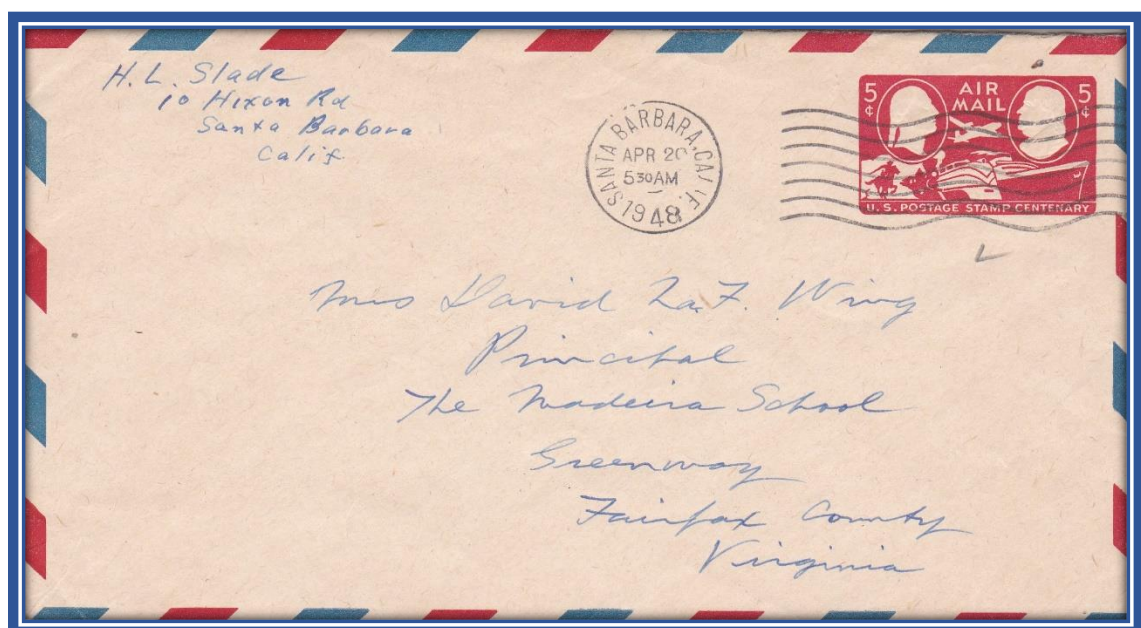 H. L. Slade
10 Hixon Rd
Santa Barbara
Calif
SANTA BARBARA, CALIF.
APR 20
5 30 AM
1948
5¢ AIR MAIL 5¢
U. S. POSTAGE STAMP CENTENARY
Mrs David La.F. Wing
Principal
The Madeira School
Greenway
Fairfax County
Virginia